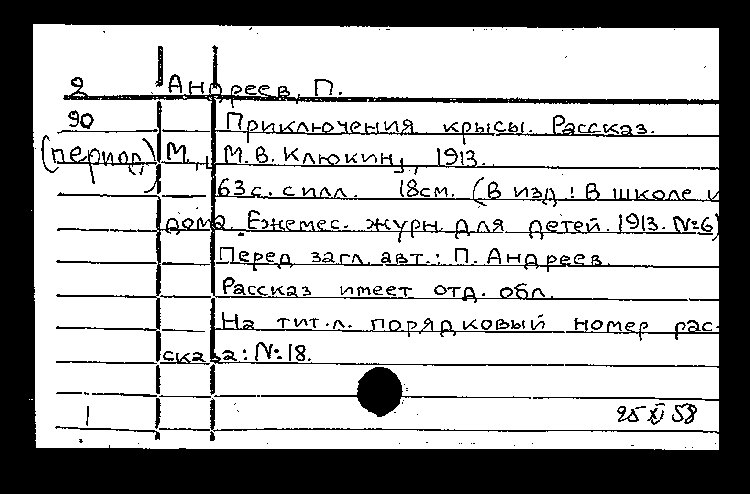 2 Андреев, П.
90 Приключения крысы. Рассказ.
(период) М., М.В. Клюкин, 1913.
63с. с илл. 18см. (В изд.: В школе и
дома. Ежемес. журн. для детей. 1913. №6)
Перед загл. авт.: П. Андреев.
Рассказ имеет отд. обл.
На тит.л. порядковый номер рас-
сказа: №18.
1 25 XI 58